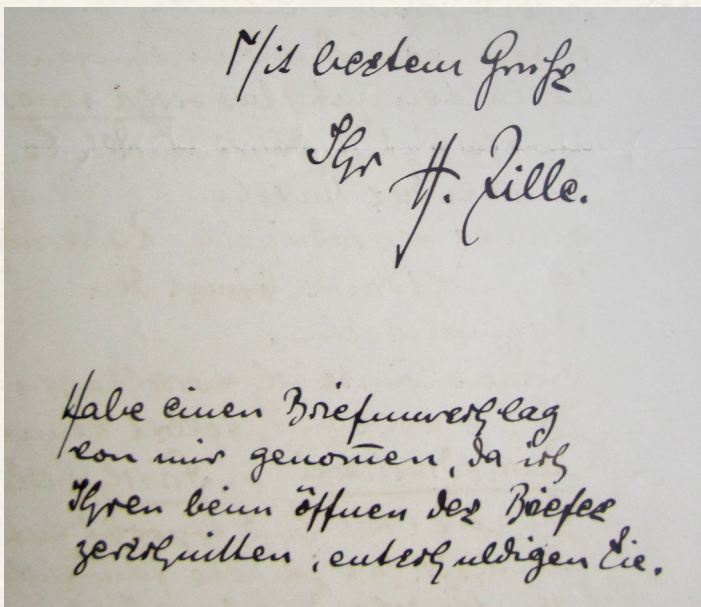 Mit bestem Gruße
Ihr H. Zille.
Habe einen Briefumschlag
von mir genom̅en, da ich
Ihren beim öffnen des Briefes
zerschnitten, entschuldigen Sie.